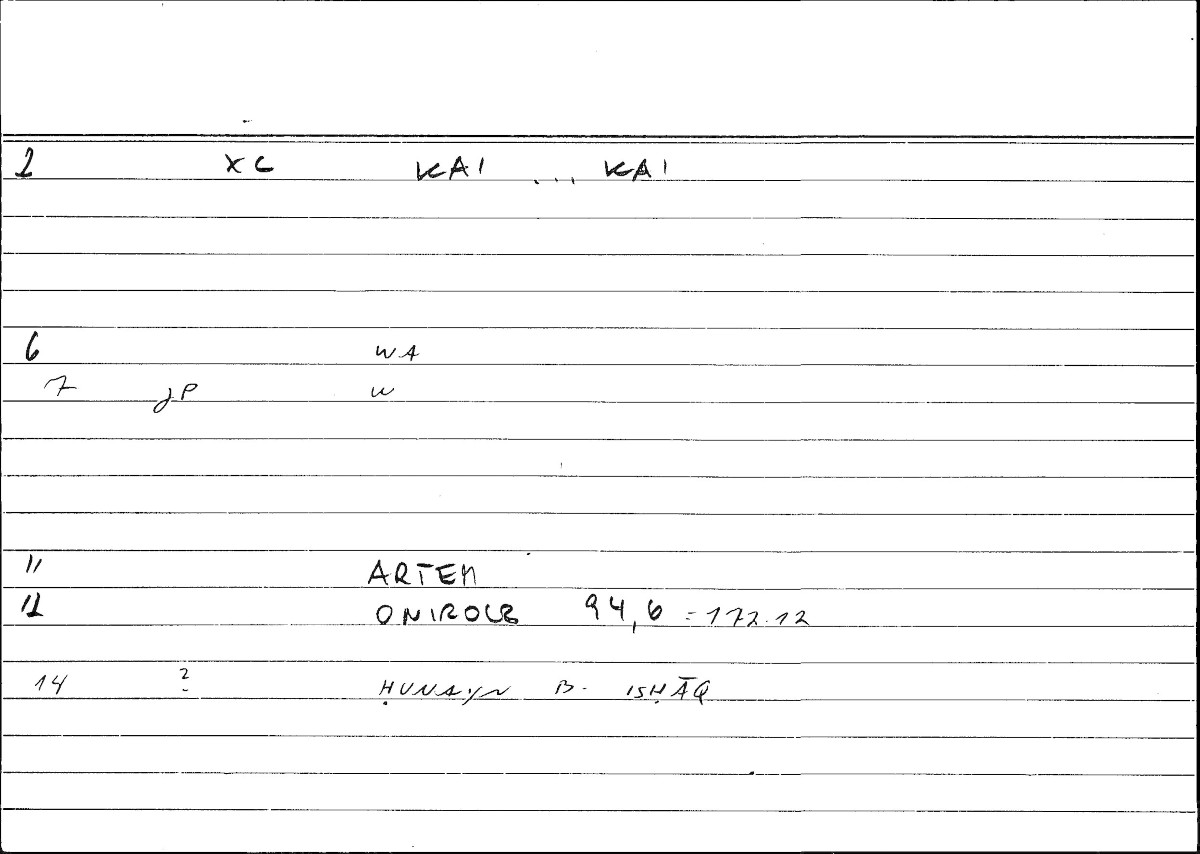 2 XC KAI ... KAI
6 WA
7 JP W
11 ARTEM
12 ONIROCR 94,6 = 172.12
14 2 ḤUNAYN B. ISḤĀQ